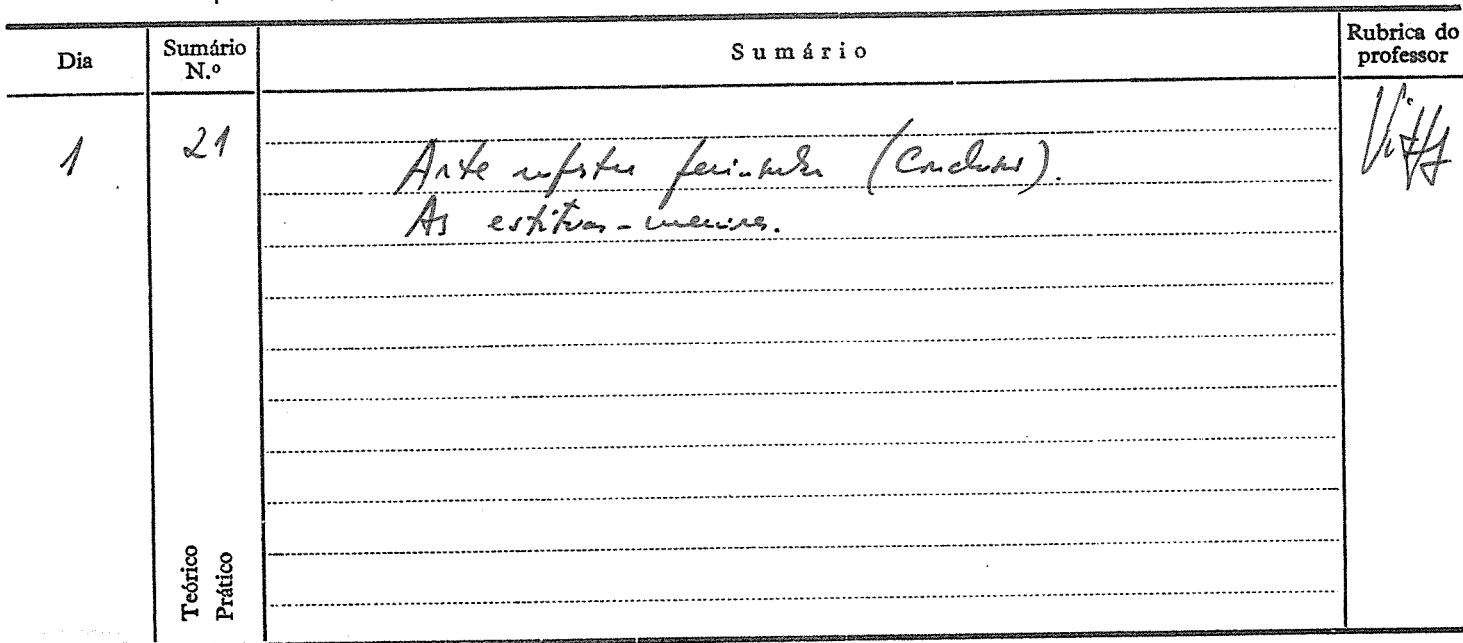 Dia
Sumário N.º
Sumário
Rubrica do professor
1
21
Arte rupestre peninsular (Conclusão).
As
Teórico
Prático